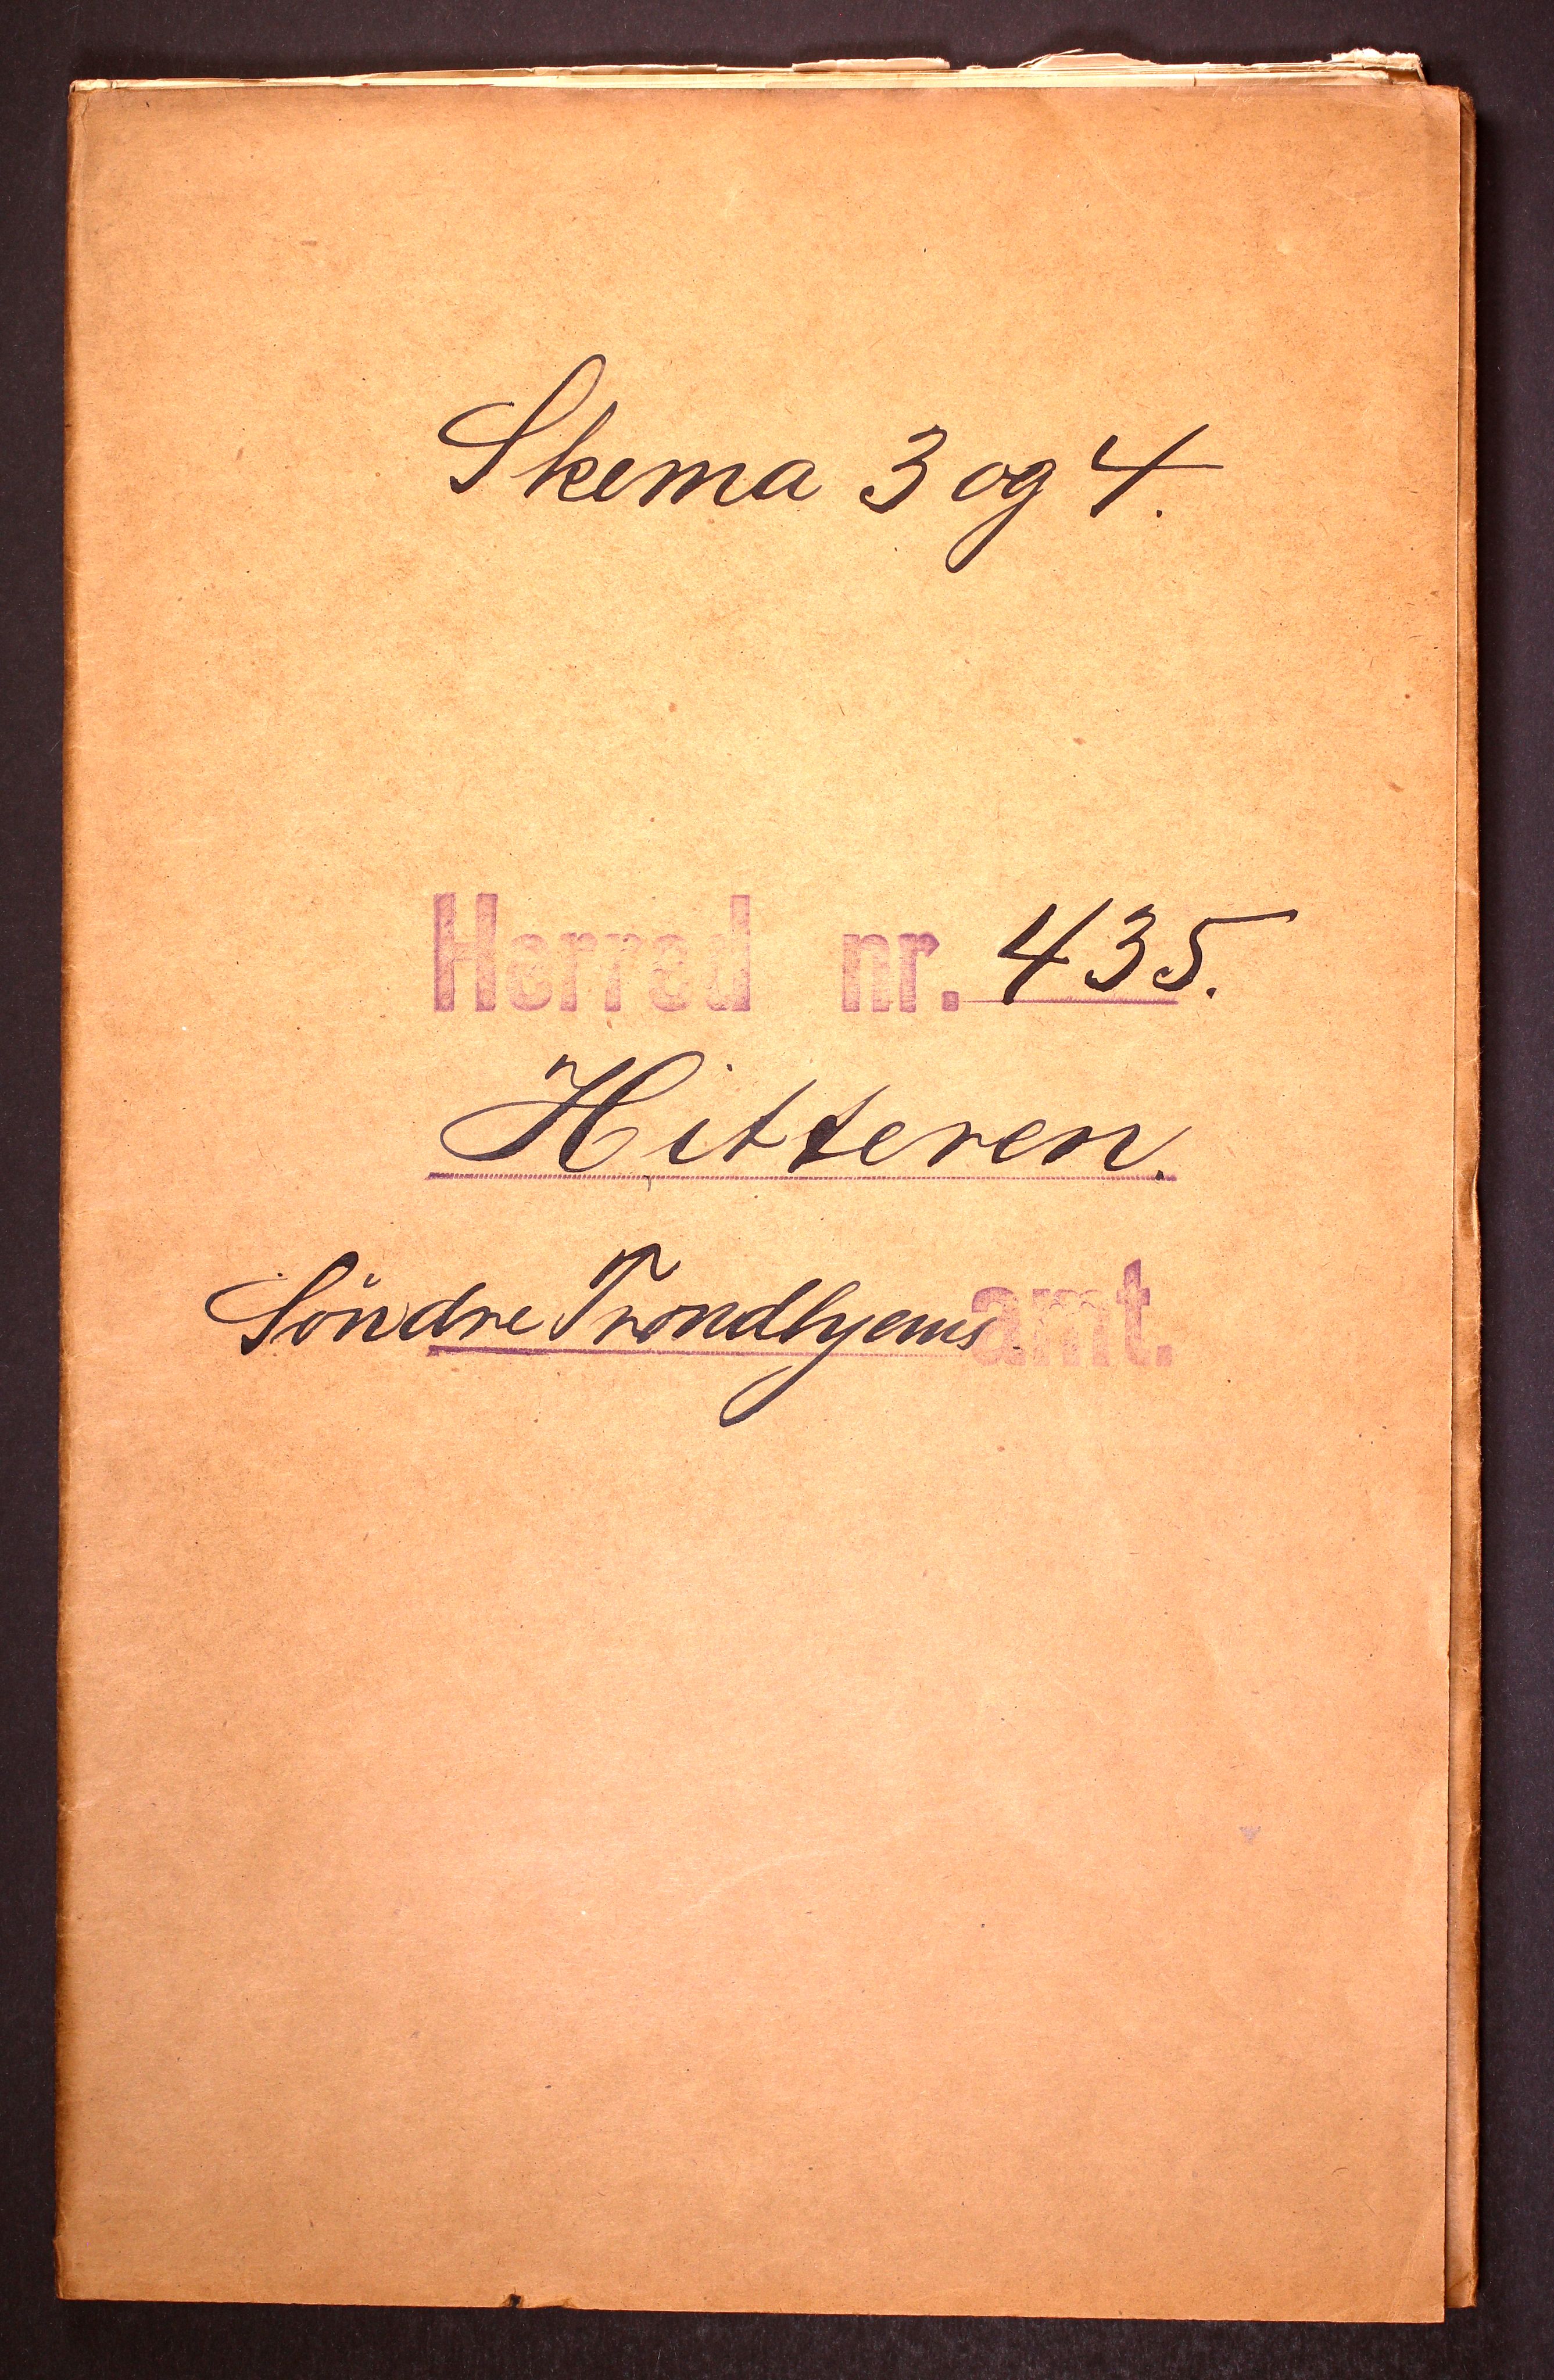 Skema 3 og 4.
Herred nr. 435.
Hitteren.
Söndre Trondhjems amt.